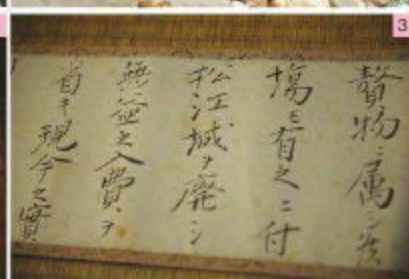 贅物ニ属シ候
場モ有之ニ付
松江城ヲ廃シ
無益之入費ヲ
省キ現今之實
3